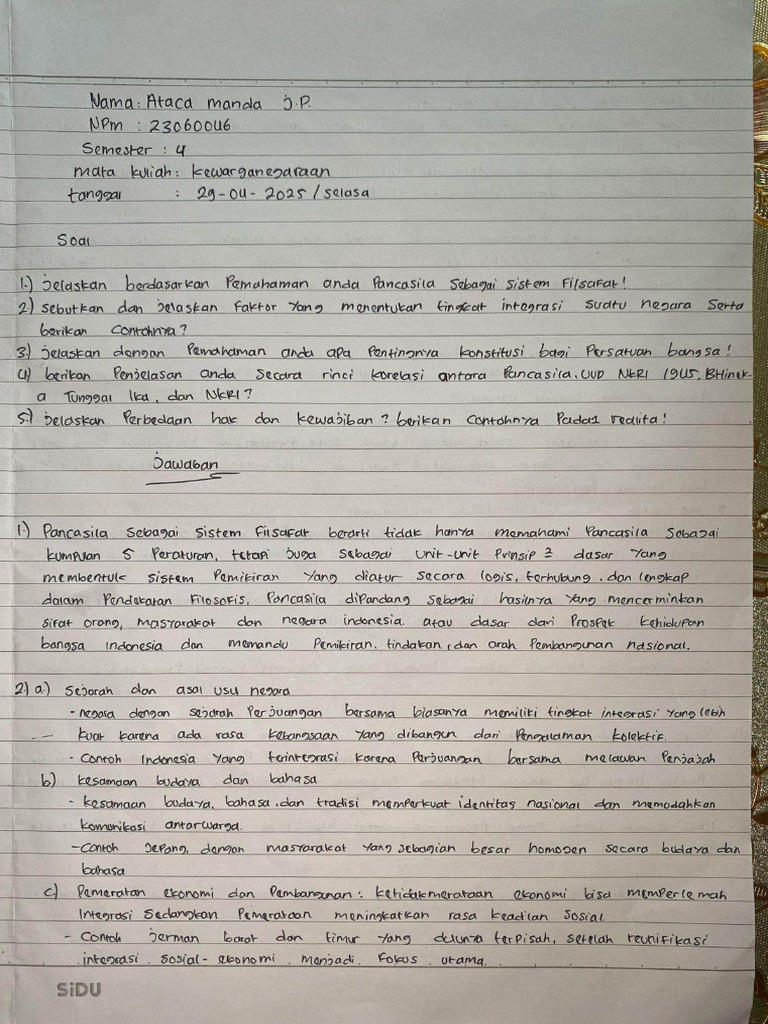 Nama : Ataca manda J.P.
NPm : 23060046
Semester : 4
mata kuliah : kewarganegaraan
tanggal : 29-04-2025 / selasa
Soal
1.) Jelaskan berdasarkan Pemahaman anda Pancasila Sebagai Sistem Filsafat!
2.) Sebutkan dan jelaskan Faktor yang menentukan tingkat integrasi suatu negara serta
berikan Contohnya?
3.) Jelaskan dengan Pemahaman anda apa Pentingnya konstitusi bagi Persatuan bangsa!
4.) berikan Penjelasan anda Secara rinci korelasi antara Pancasila, UUD NKRI 1945, BHinek-
a Tunggal Ika, dan NKRI?
5.) Jelaskan Perbedaan hak dan kewajiban? berikan Contohnya Pada1 realita!
Jawaban
1.) Pancasila Sebagai Sistem Filsafat berarti tidak hanya memahami Pancasila Sebagai
kumpulan 5 Peraturan, tetapi juga Sebagai unit-unit Prinsip 2 dasar yang
membentuk sistem Pemikiran yang diatur secara logis, terhubung, dan lengkap
dalam Pendekatan Filosofis, Pancasila dipandang Sebagai hasilnya yang mencerminkan
sifat orang, masyarakat dan negara indonesia. atau dasar dari Prospek kehidupan
bangsa Indonesia dan memandu Pemikiran, tindakan, dan arah Pembangunan nasional.
2.) a.) Sejarah dan asal usu negara
- negara dengan sejarah Perjuangan bersama biasanya memiliki tingkat integrasi yang lebih
kuat karena ada rasa kebangsaan yang dibangun dari Pengalaman kolektif.
- Contoh Indonesia yang terintegrasi karena Perjuangan bersama melawan Penjajah
b) kesamaan budaya dan bahasa
- kesamaan budaya, bahasa, dan tradisi memperkuat identitas nasional dan memudahkan
komunikasi antarwarga.
- Contoh Jepang, dengan masyarakat yang sebagian besar homogen secara budaya dan
bahasa
c) Pemeratan ekonomi dan Pembangunan : ketidakmerataan ekonomi bisa memperlemah
Integrasi Sedangkan Pemerataan meningkatkan rasa keadilan Sosial
- Contoh Jerman barat dan timur yang dulunya terpisah, setelah reunifikasi
integrasi sosial-ekonomi menjadi Fokus utama.
SiDU